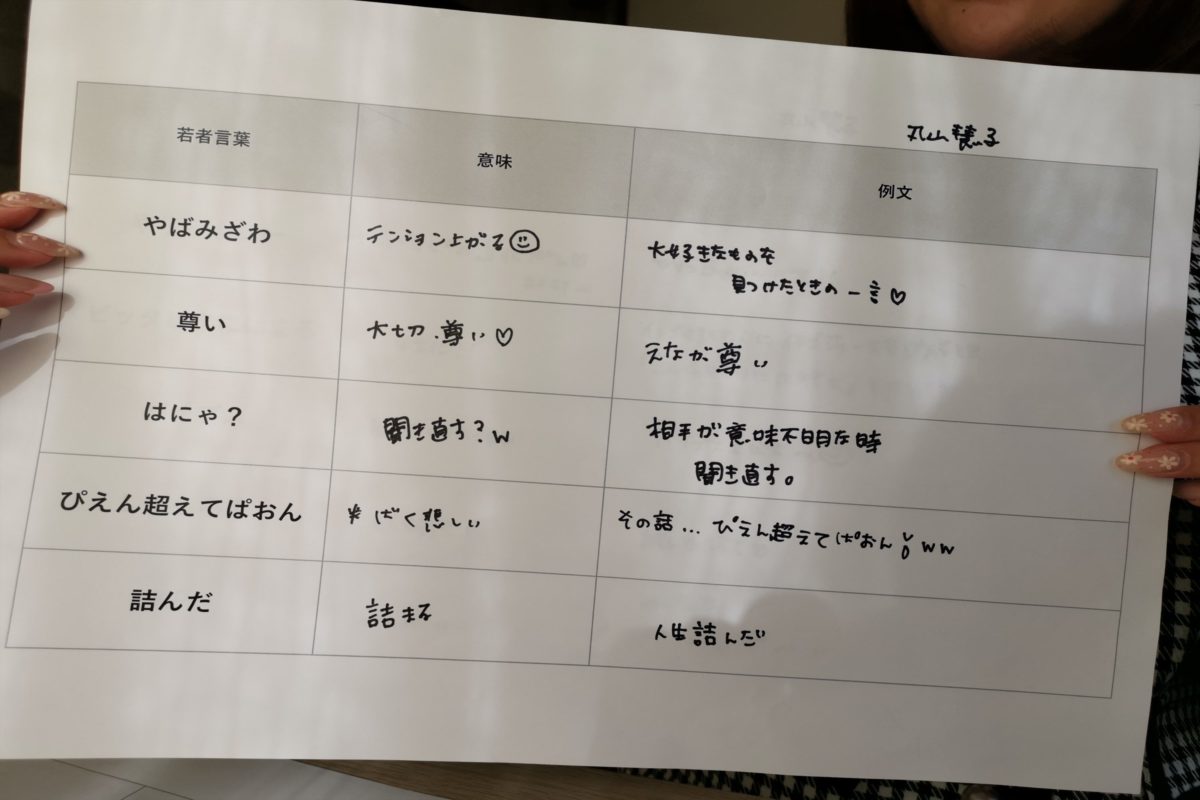 丸山
若者言葉 意味 例文
やばみざわ テンション上がる☺ 大好きなものを
見つけたときの一言♡
尊い 大切.尊い♡ えなが尊い
はにゃ？ 聞き直す?w 相手が意味不明な時
聞き直す。
ぴえん超えてぱおん ばく悲しい その話... ぴえん超えてぱおん ww
詰んだ 詰まる 人生詰んだ